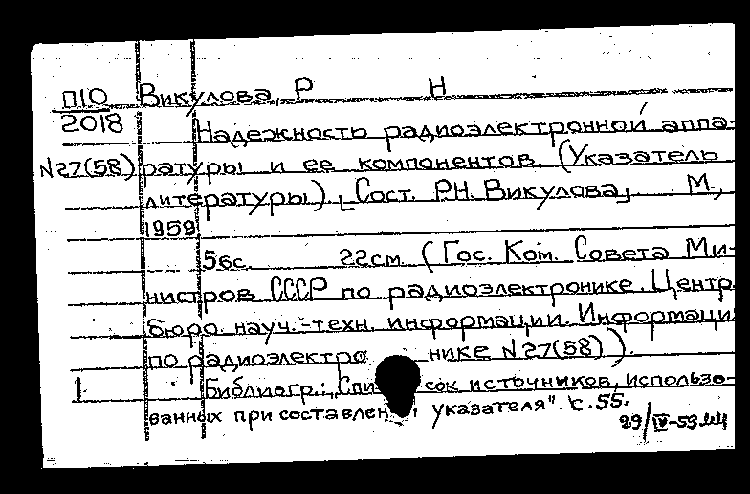 П10 Викулова, Р Н
2018 Надежность радиоэлектронной аппа-
N27(58) ратуры и ее компонентов (Указатель
литературы). Сост. Р.Н. Викулова, М,
1959
56с. 22см. (Гос. Ком. Совета Ми-
нистров СССР по радиоэлектронике. Центр.
бюро науч.-техн. информации. Информаци
по радиоэлектро нике N27(58)).
1 Библиогр.: "Спи сок источников, использо-
ванных при составлен указателя" с. 55.